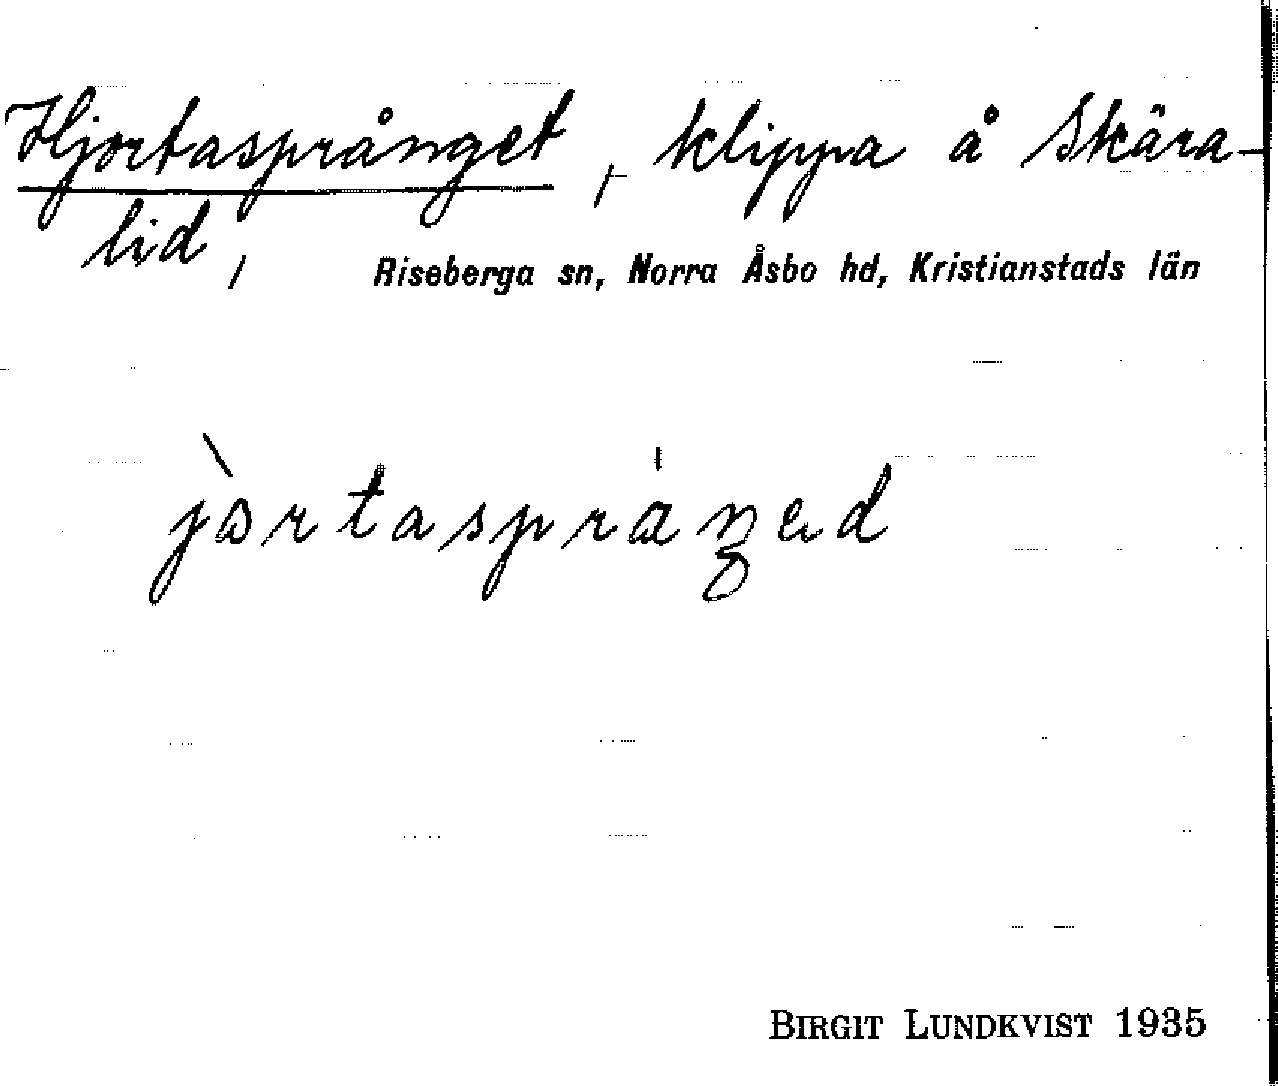 Hjortasprånget, klippa å Skära-
lid,
Riseberga sn, Norra Åsbo hd, Kristianstads län
BIRGIT LUNDKVIST 1935